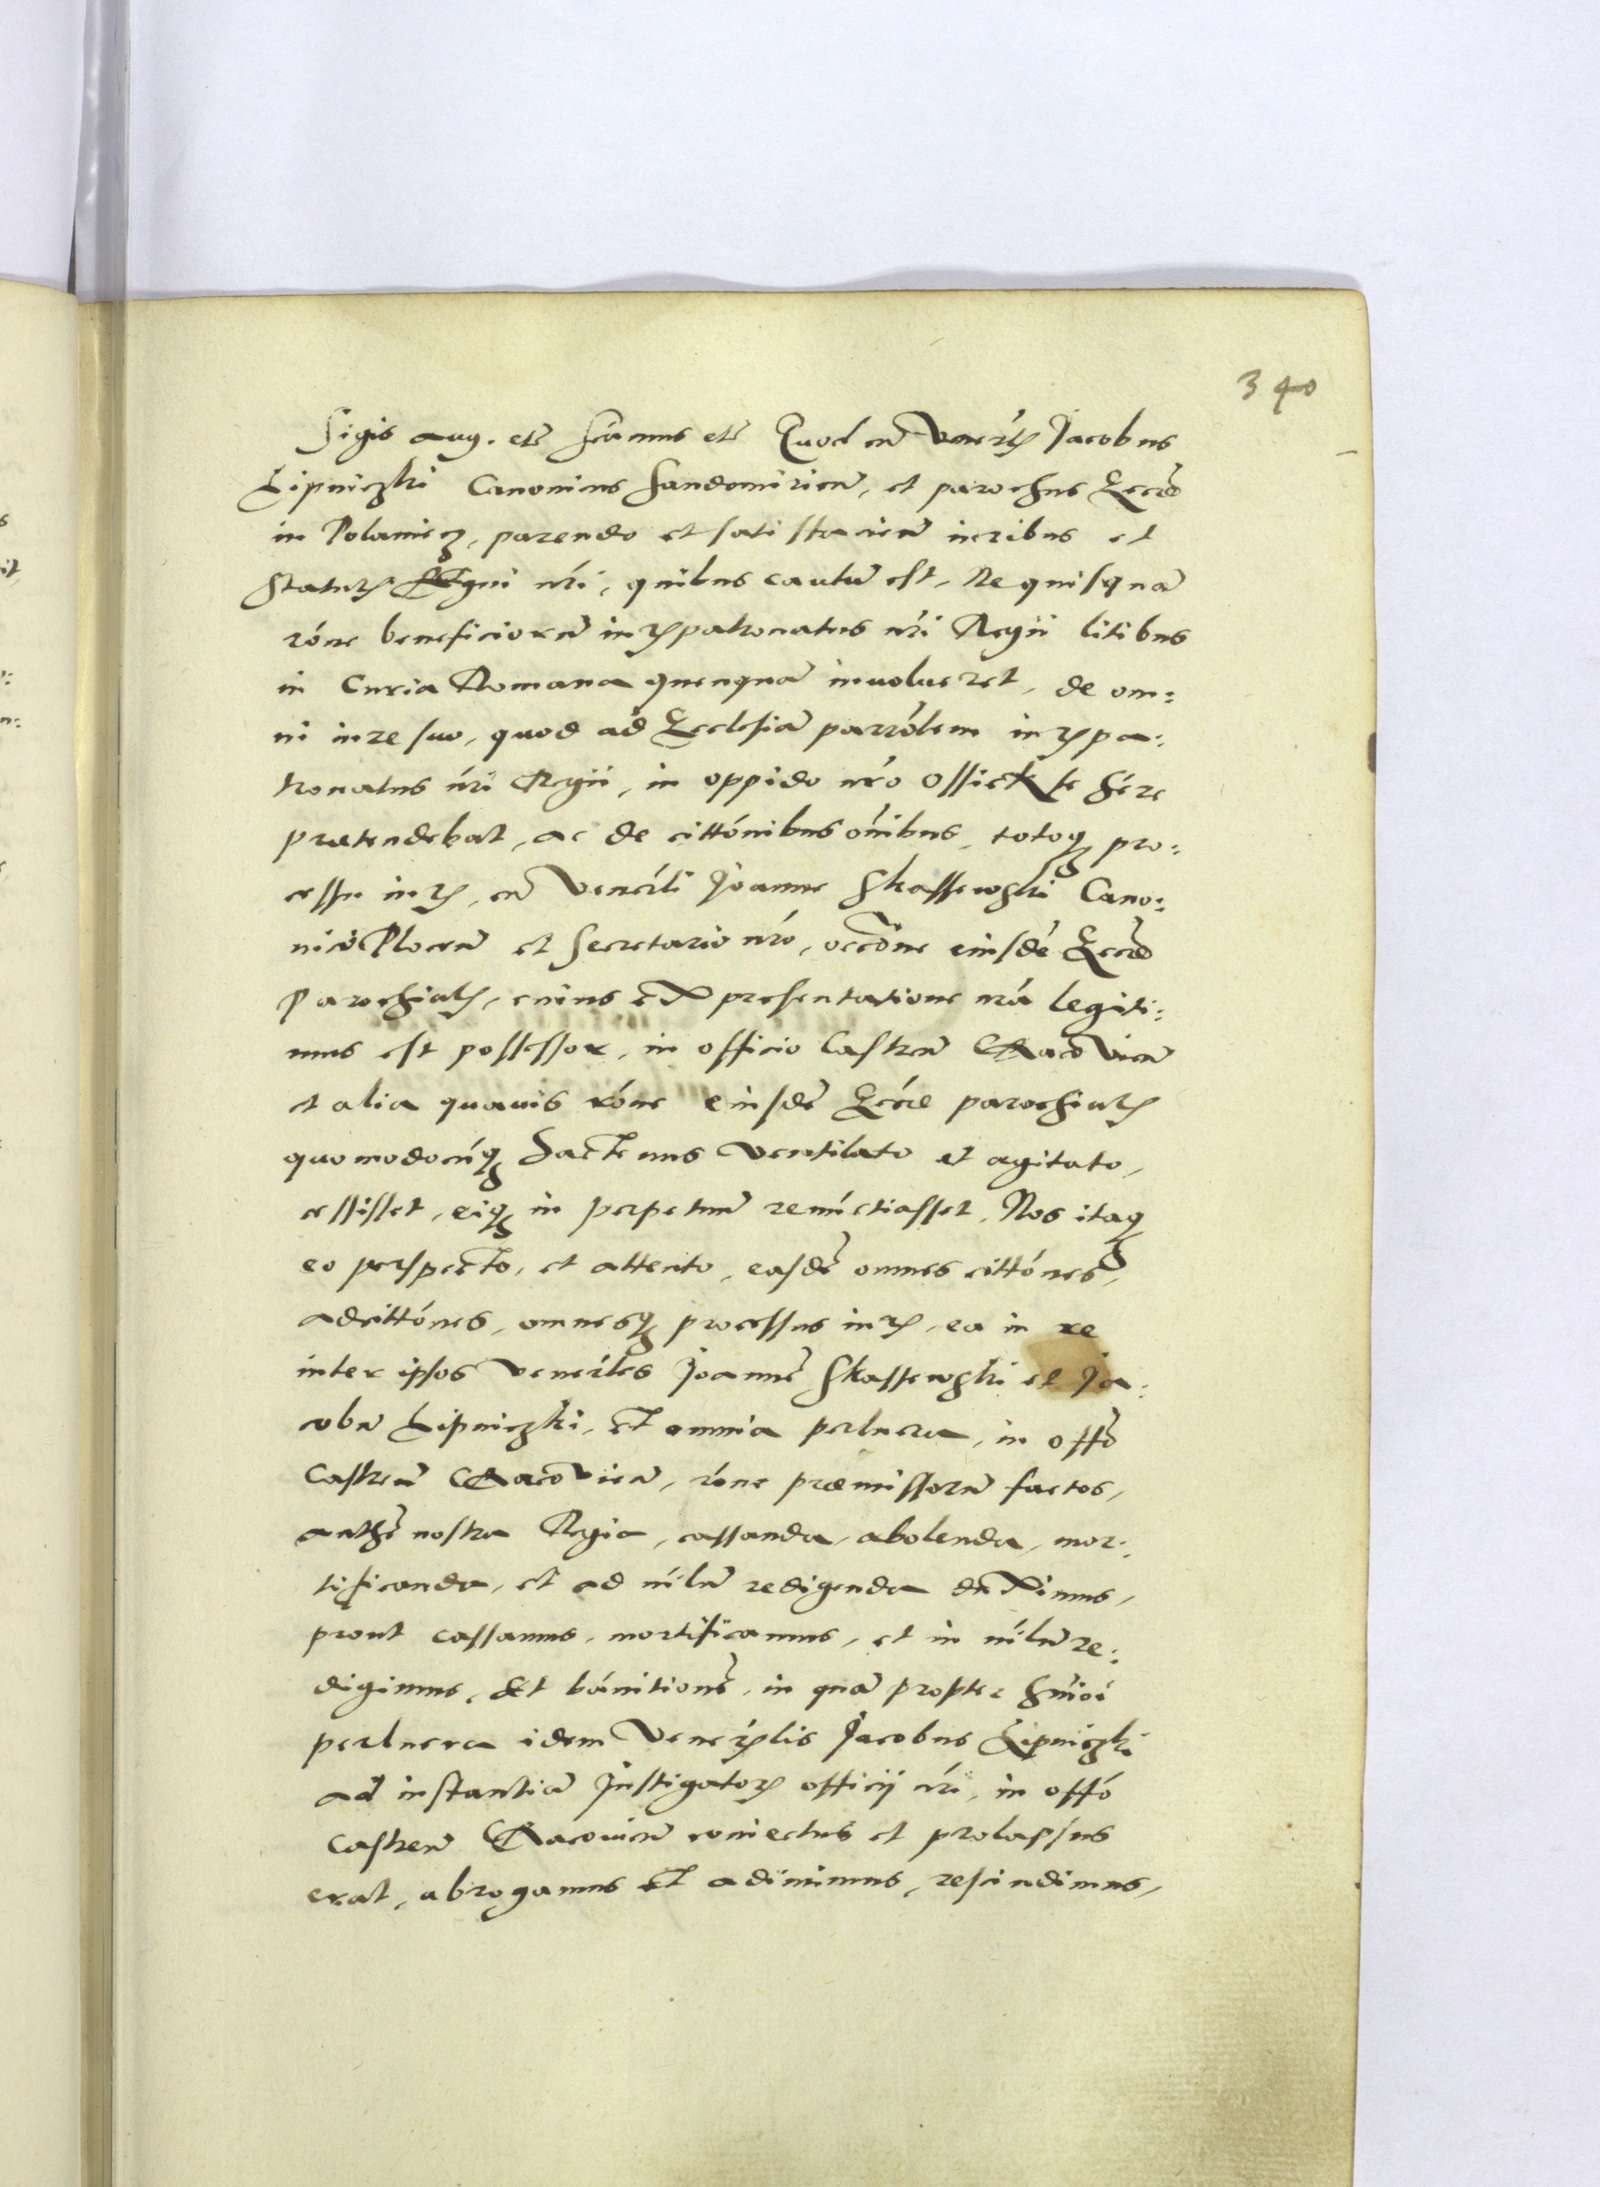 340
Sigis aug. etc̃ scimus etc̃ Quod cũ Venerlis Jacobus
Lipniczki Canonicus Sandomirien̄, et parochus Eccliæ
in Polaniecz, parendo et satisfacien̄ iuribus et
statutis Regni nr̄i, quibus cautum est, Ne quisquã
rōne beneficiorũ iurispatronatus nr̄i Regii litibus
in Curia Romana quenquã inuolueret, de om:
ni iure suo, quod ad Ecclesiã parrōlem iurispa:
tronatus nr̄i Regii, in oppido nr̄o Ossiek se hēre
prætendebat, ac de cittōnibus oībus, totoq; pro:
cessu iuris, cũ Venerli Joanne Skassewski Cano:
nico Plocen̄ et Secretario nr̄o, occõne eiusdẽ Eccliæ
Parochialis, cuius ex præsentatione nr̄a legiti:
mus est possessor, in officio Castren̄ Cracovien̄
et alia quauis rōne eiusdẽ Eccliæ parochialis
quomodocūq; hactenus ventilato et agitato,
cessisset, eiq; in perpetuũ renūctiasset, Nos itaq;
eo perspecto, et attento, easdẽ omnes cittōnes,
adcittōnes, omnesq; processus iuris, ea in re
inter ipsos Venerles Joannẽ Skassewski et Ja:
cobũ Lipniczki, et omnia perlucra, in offō
Castren̄ Cracovien̄, rōne præmissorũ factos,
authẽ nostra Regia, cassanda, abolenda, mor:
tificanda, et ad nīlũ redigenda duximus,
prout cassamus, mortificamus, et in nīlũ re:
digimus, Et bānitionẽ, in quã propter hmōi
perlucra idem Venerlis Jacobus Lipniczki
ad instantiã Instigatoris officij nr̄i, in offō
Castren̄ Cracovien̄ coniectus et prolapsus
erat, abrogamus et adimimus, rescindimus,